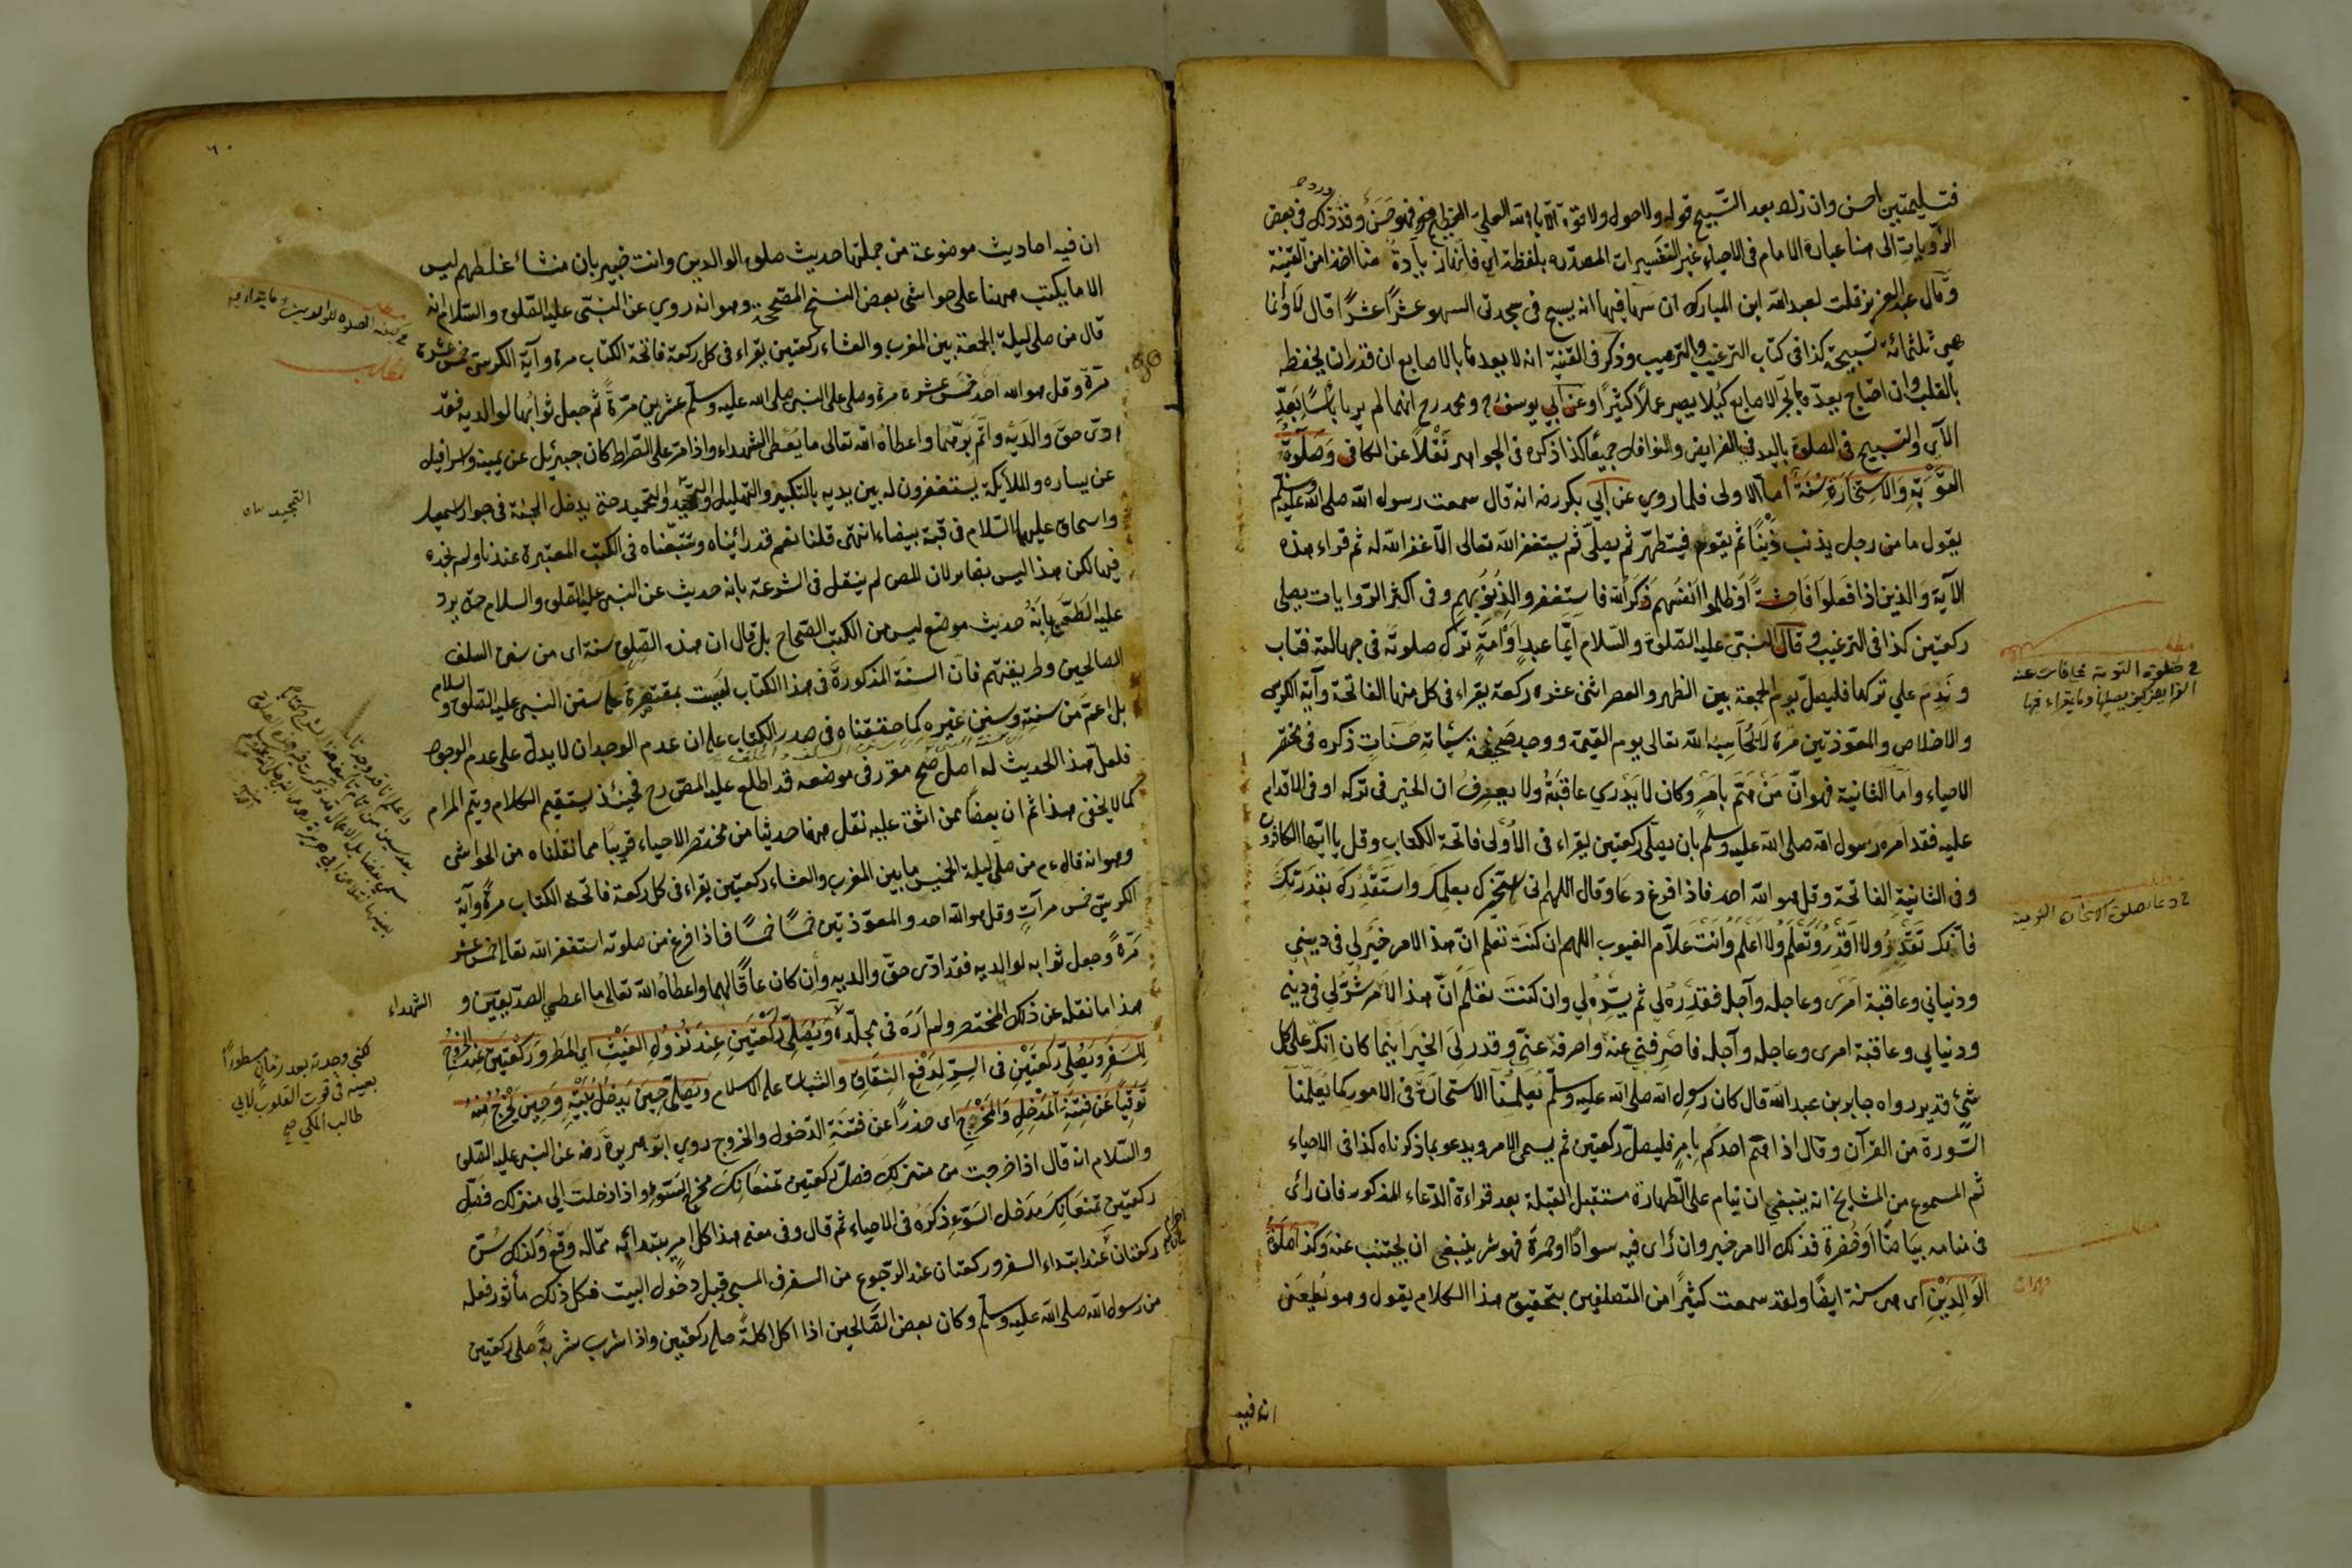 فتسليمتين احسن وان زاد بعد التسبيح قوله ولا حول ولا قوة الا بالله العلي العظيم فهو حسن وقد ورد ذلك في بعض
الروايات الى هنا عبارة الامام في الاحياء غير التفسيرات المصدرة بلفظة اي
وقال عبد العزيز قلت لعبد الله ابن المبارك ان سها فيها انه يسبح في سجدتي السهو عشرًا عشرًا قال لا وانما
هي ثلثمائة تسبيحة كذا في كتاب الترغيب والترهيب وذكر في القنية انه لا يعدها بالاصابع ان قدر ان يحفظ
بالقلب وان احتاج يعدّه بالاصابع كيلا يصير عملاً كثيرًا وعن ابي يوسف رح ومحمد رح انهما لم يريا بأسًا بعدّ
الآي والتسبيح في الصلوة باليد في الفرايض والنوافل جميعًا كذا ذكره في الجواهر نقلاً عن الكافي وصلوة
التوبة والاستخارة سنة اما الاولى فلما روي عن ابي بكر رضه انه قال سمعت رسول الله صلى الله عليه وسلم
يقول ما من رجل يذنب ذنبًا ثم يقوم فيتطهر ثم يصلي ثم يستغفر الله تعالى الا غفر الله له ثم قراء هذه
الآية والذين اذا فعلوا فاحشة او ظلموا انفسهم ذكروا الله فاستغفروا لذنوبهم وفي اكثر الروايات يصلي
ركعتين كذا في الترغيب وقال النبي عليه الصلوة والسلام ايما عبد او امة ترك صلوته في جهالته فتاب
وندم على تركها فليصل يوم الجمعة بين الظهر والعصر اثنى عشرة ركعة يقراء في كل منها الفاتحة وآية الكرسي
والاخلاص والمعوذتين مرة لا يحاسبه الله تعالى يوم القيمة ووجد صحيفة سيئاته حسنات ذكره في مختصر
الاحياء واما الثانية فهو انّ من همّ بامر وكان لا يدري عاقبته ولا يعرف ان الخير في تركه او في الاقدام
عليه فقد امره رسول الله صلى الله عليه وسلم بان يصلي ركعتين يقراء في الاولى فاتحة الكتاب وقل يا ايها الكافرون
وفي الثانية الفاتحة وقل هو الله احد فاذا افرغ دعا وقال اللهم اني استخيرك بعلمك واستقدرك بقدرتك
فانك تقدر ولا اقدر وتعلم ولا اعلم وانت علام الغيوب اللهم ان كنت تعلم ان هذا الامر خير لي في ديني
ودنياي وعاقبة امرى وعاجله وآجله فقدره لي ثم يسره لي وان كنت تعلم ان هذا الامر شر لي في ديني
ودنياي وعاقبة امرى وعاجله وآجله فاصرفني عنه واصرفه عني وقدر لي الخير اينما كان انك على كل
شيء قدير رواه جابر بن عبد الله قال كان رسول الله صلى الله عليه وسلم يعلمنا الاستخارة في الامور كما يعلمنا
السورة من القرآن وقال اذا همّ احدكم بامر فليصل ركعتين ثم يسمى الامر ويدعو بما ذكرناه كذا في الاحياء
ثم المسموع من المشايخ انه ينبغي ان ينام على الطهارة مستقبل القبلة بعد قراءة الدعاء المذكور فان رأى
في منامه بياضًا او خضرة فذلك الامر خير وان رأى فيه سوادًا او حمرة فهو شر ينبغي ان يجتنب عنه وكذا صلوة
الوالدين اى هى سنة ايضًا ولقد سمعت كثيرًا من المتصلفين بتحقيق هذا الكلام يقول وهو يطعن
ان فيه
في صلوة التوبة عما فات عنه
الفرايض كيف يصليها وما يقراء فيها
في دعاء صلوة الاستخارة
ان فيه احاديث موضوعة من جملتها حديث صلوة الوالدين وانت خبير بان منشاء غلطهم ليس
الا ما يكتب ههنا على حواشى بعض النسخ المصححة وهو انه روي عن النبي عليه الصلوة والسلام انه
قال من صلى ليلة الجمعة بين المغرب والعشاء ركعتين يقراء في كل ركعة فاتحة الكتاب مرة وآية الكرسي خمس عشرة
مرة وقل هو الله احد خمس عشرة مرة وصلى على النبي صلى الله عليه وسلم عشرين مرة ثم جعل ثوابها لوالديه فقد
ادى حق والديه واتم برهما واعطاه الله تعالى ما يعطى الشهداء واذا مر على الصراط كان جبرئيل عن يمينه واسرافيل
عن يساره والملائكة يستغفرون له بين يديه بالتكبير والتهليل والتمجيد والتحميد حتى يدخل الجنة في جوار اسمعيل
واسحاق عليهما السلام في قبة بيضاء انتهى قلنا نعم قد رأيناه وتتبعناه في الكتب المعتبرة عندنا ولم نجده
فيها لكن هذا ليس بضائر لان المص لم ينقل في الشرعة بانه حديث عن النبي عليه الصلوة والسلام حتى يرد
عليه الطعن بانه حديث موضع ليس من الكتب الصحاح بل قال ان هذه الصلوة سنة اى من سنن السلف
الصالحين وطريقتهم فان السنة المذكورة في هذا الكتاب ليست بمقتصرة على سنن النبي عليه الصلوة والسلام
بل اعم من سنته وسنن غيره كما حققناه في صدر الكتاب على ان عدم الوجدان لا يدل على عدم الوجود
فلعل هذا الحديث له اصل صح مقرر في موضعه قد اطلع عليه المص رح فحينئذ يستقيم الكلام ويتم المرام
كما لا يخفى هذا ثم ان بعضًا ممن اثق عليه نقل ههنا حديثا من مختصر الاحياء قريبًا مما نقلناه من الحواشى
وهو انه قال عم من صلى ليلة الخميس ما بين المغرب والعشاء ركعتين يقراء في كل ركعة فاتحة الكتاب مرة وآية
الكرسي خمس مرات وقل هو الله احد والمعوذتين خمسًا خمسًا فاذا فرغ من صلوته استغفر الله تعالى خمس عشر
مرة وجعل ثوابه لوالديه فقد ادى حق والديه وان كان عاقًا لهما واعطاه الله تعالى ما اعطي الصديقين و
هذا ما نقله عن ذلك المختصر ولم اره في مجلده ويصلي ركعتين عند نزول الغيث اي المطر وركعتين عند الخروج
للسفر ويصلي ركعتين في السر لدفع النفاق والثبات على الاسلام ويصلي حين يدخل بيته وحين يخرج منه
توقيًا عن فتنة المدخل والمخرج اى حذرًا عن فتنة الدخول والخروج روي ابو هريرة رضه عن النبي عليه الصلوة
والسلام انه قال اذا خرجت من منزلك فصل ركعتين تمنعانك مخرج السوء واذا دخلت الى منزلك فصل
ركعتين تمنعانك مدخل السوء ذكره في الاحياء ثم قال وفي معنى هذا كل امر يبتدأ به مما له وقع وكذلك سن
ركعتان عند ابتداء السفر وركعتان عند الرجوع من السفر في المسجد قبل دخول البيت فكل ذلك مأثور فعله
من رسول الله صلى الله عليه وسلم وكان بعض الصالحين اذا اكل اكلة صلى ركعتين واذا شرب شربة صلى ركعتين
التمجيد
الشهداء
لكني وجدته بعد زمان مسطورًا
بعينه في قوت القلوب لابي
طالب المكي صح